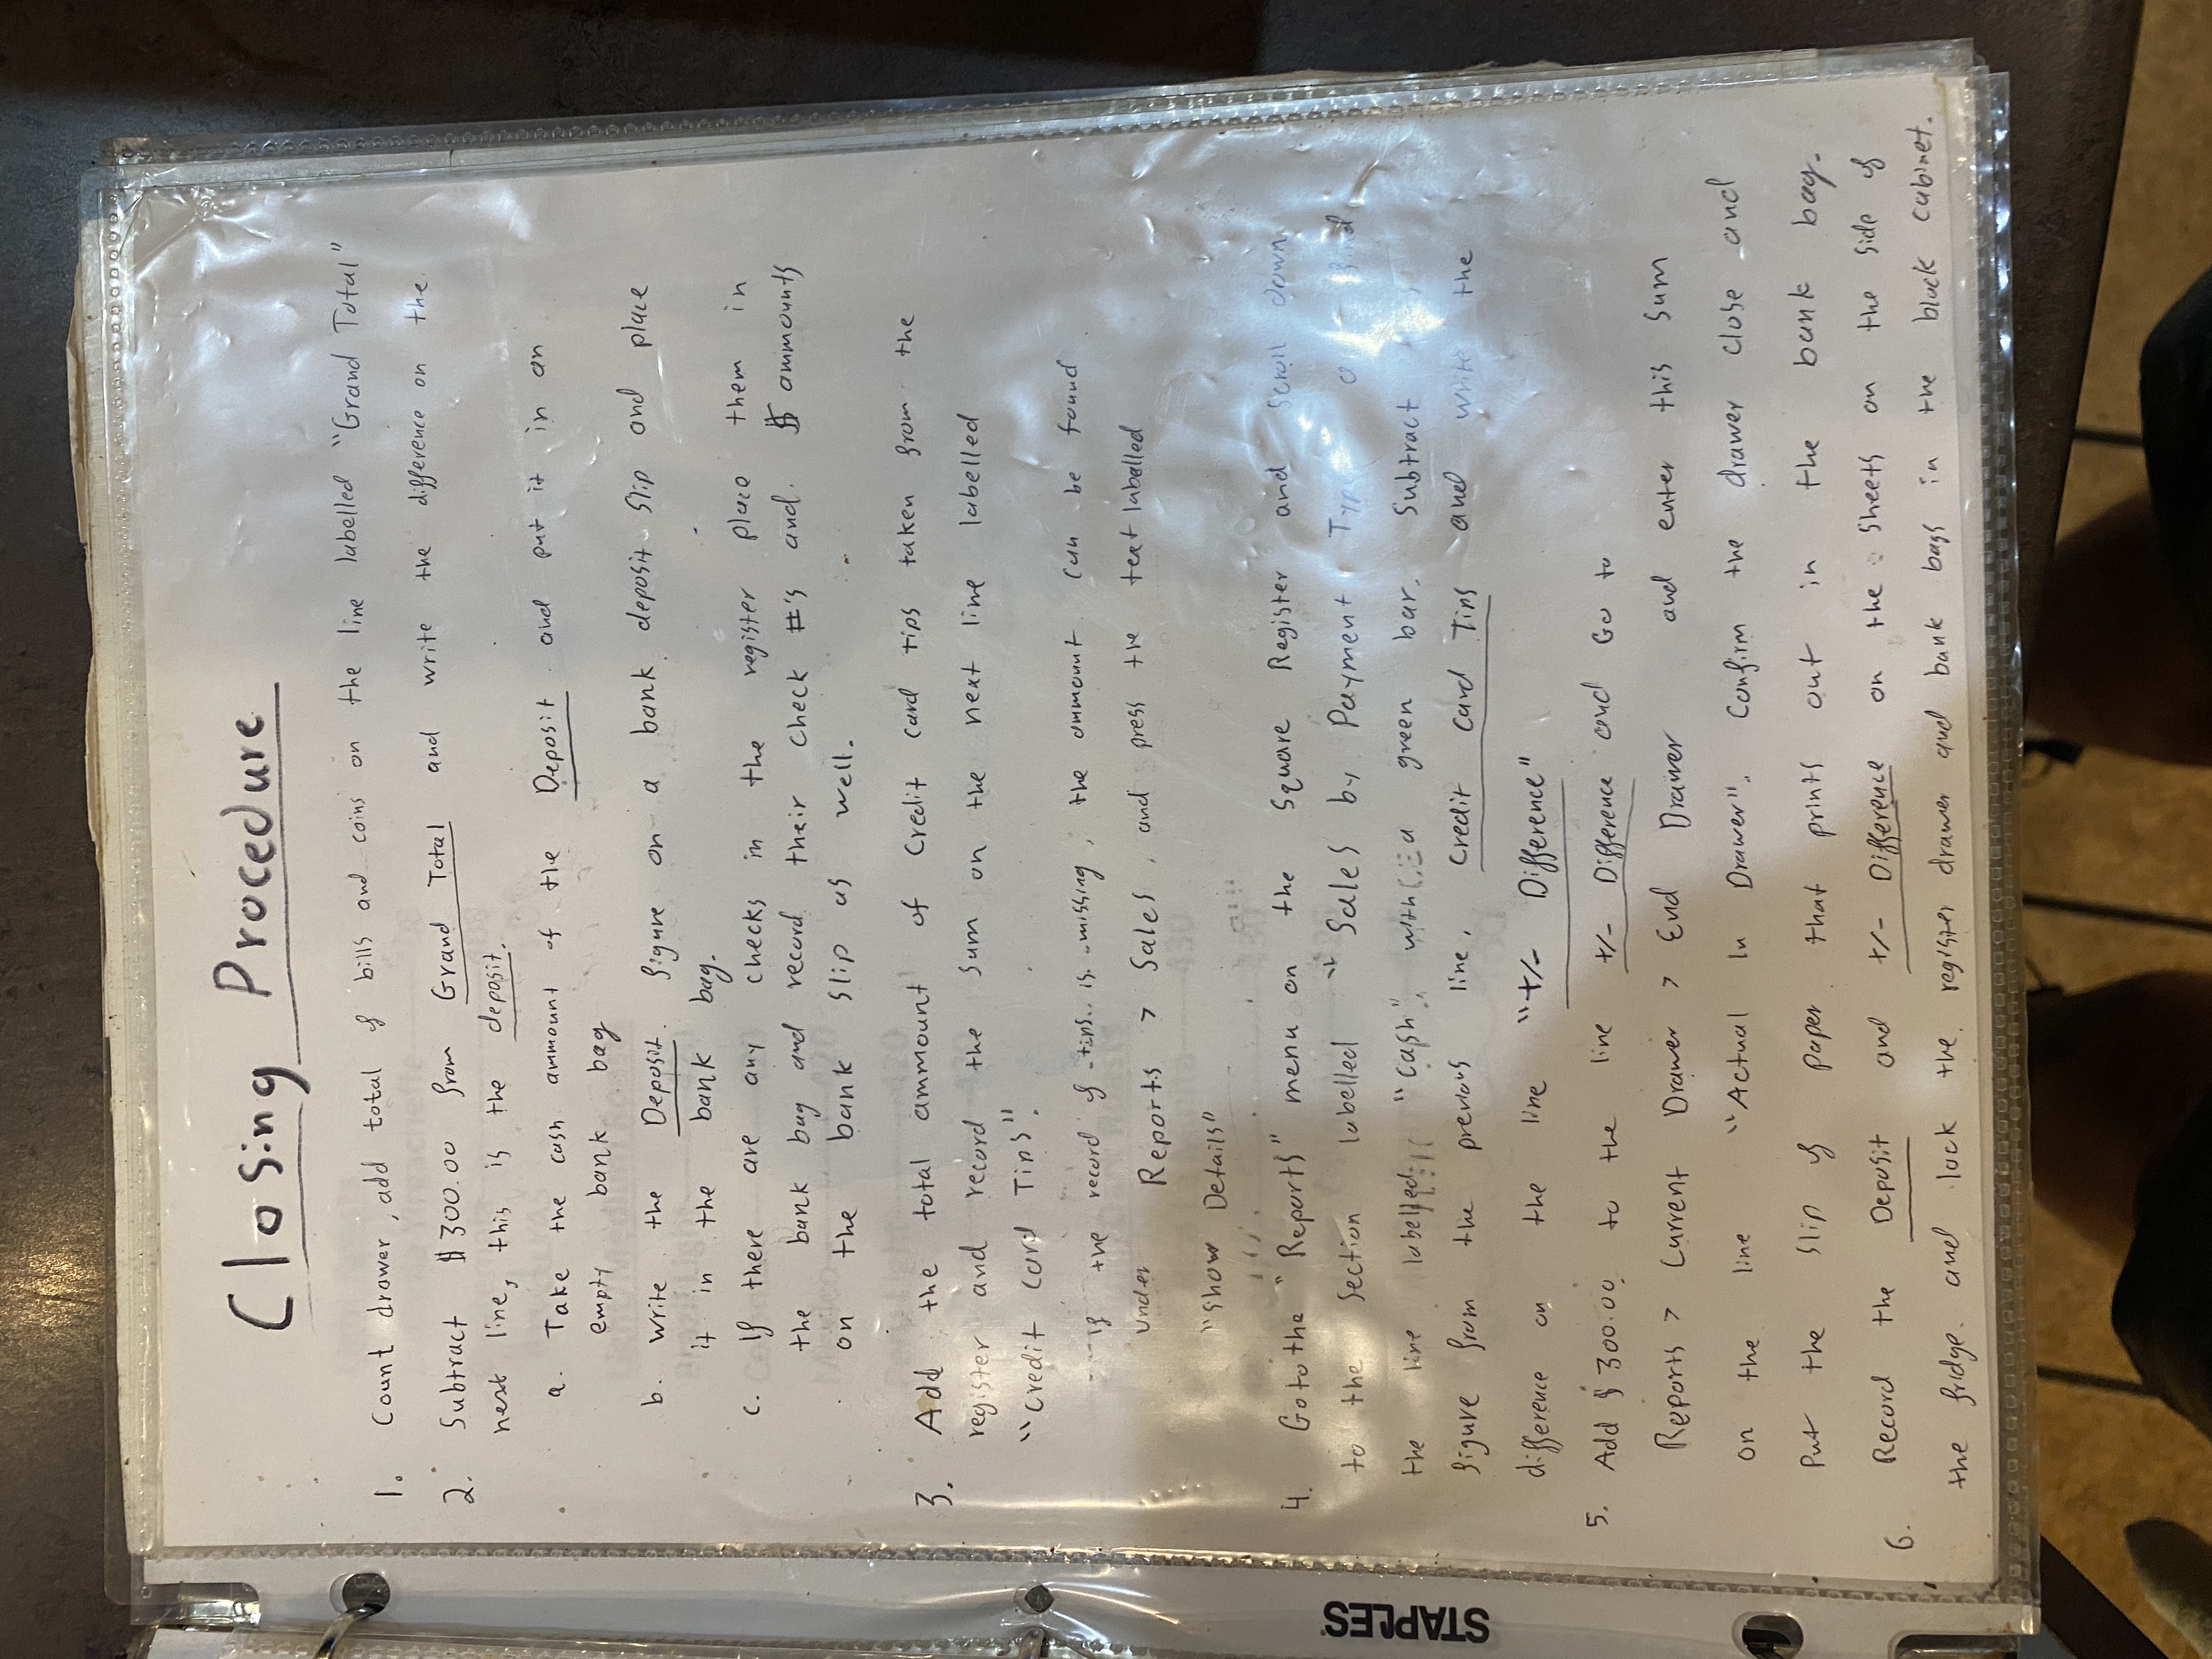 STAPLES
Closing Procedure
1. Count drawer, add total of bills and coins on the line labelled "Grand Total"
2. Subtract $300.00 from Grand Total and write the difference on the
next line, this is the deposit.
a. Take the cash ammount of the Deposit and put it in an
empty bank bag
b. write the Deposit figure on a bank deposit slip and place
it in the bank bag.
c. If there are any checks in the register place them in
the bank bag and record their check #'s and $ ammounts
on the bank slip as well.
3. Add the total ammount of Credit card tips taken from the
register and record the sum on the next line labelled
"Credit Card Tips".
If the record of tips is missing, the ammount can be found
under Reports > Sales, and press the text labelled
"Show Details"
4. Go to the "Reports" menu on the Square Register and scroll down
to the Section labelled "Sales by Payment Type" find
the line labelled "Cash" with a green bar. Subtract
figure from the previous line, Credit Card Tips and write the
difference on the line "+/- Difference"
5. Add $300.00 to the line +/- Difference and Go to
Reports > Current Drawer > End Drawer and enter this sum
on the line "Actual In Drawer". Confirm the drawer close and
Put the slip of paper that prints out in the bank bag.
6. Record the Deposit and +/- Difference on the sheets on the side of
the fridge. and lock the register drawer and bank bags in the black cabinet.